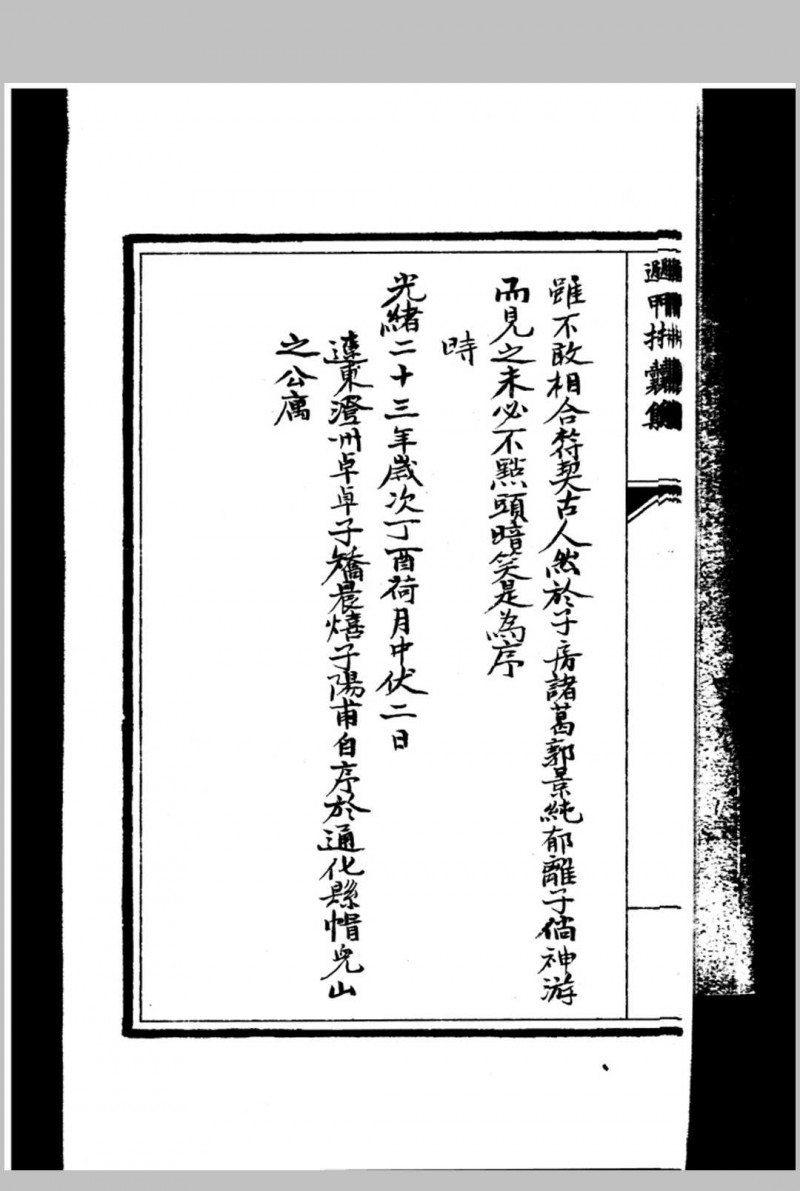 遁甲括囊集
雖不敢相合符契古人然於子房諸葛郭景純郁離子倘神游
而見之未必不點頭暗笑是為序
時
光緒二十三年歲次丁酉荷月中伏二日
遼東澄州卓卓子矯晨熺子陽甫自序於通化縣帽兒山
之公廨